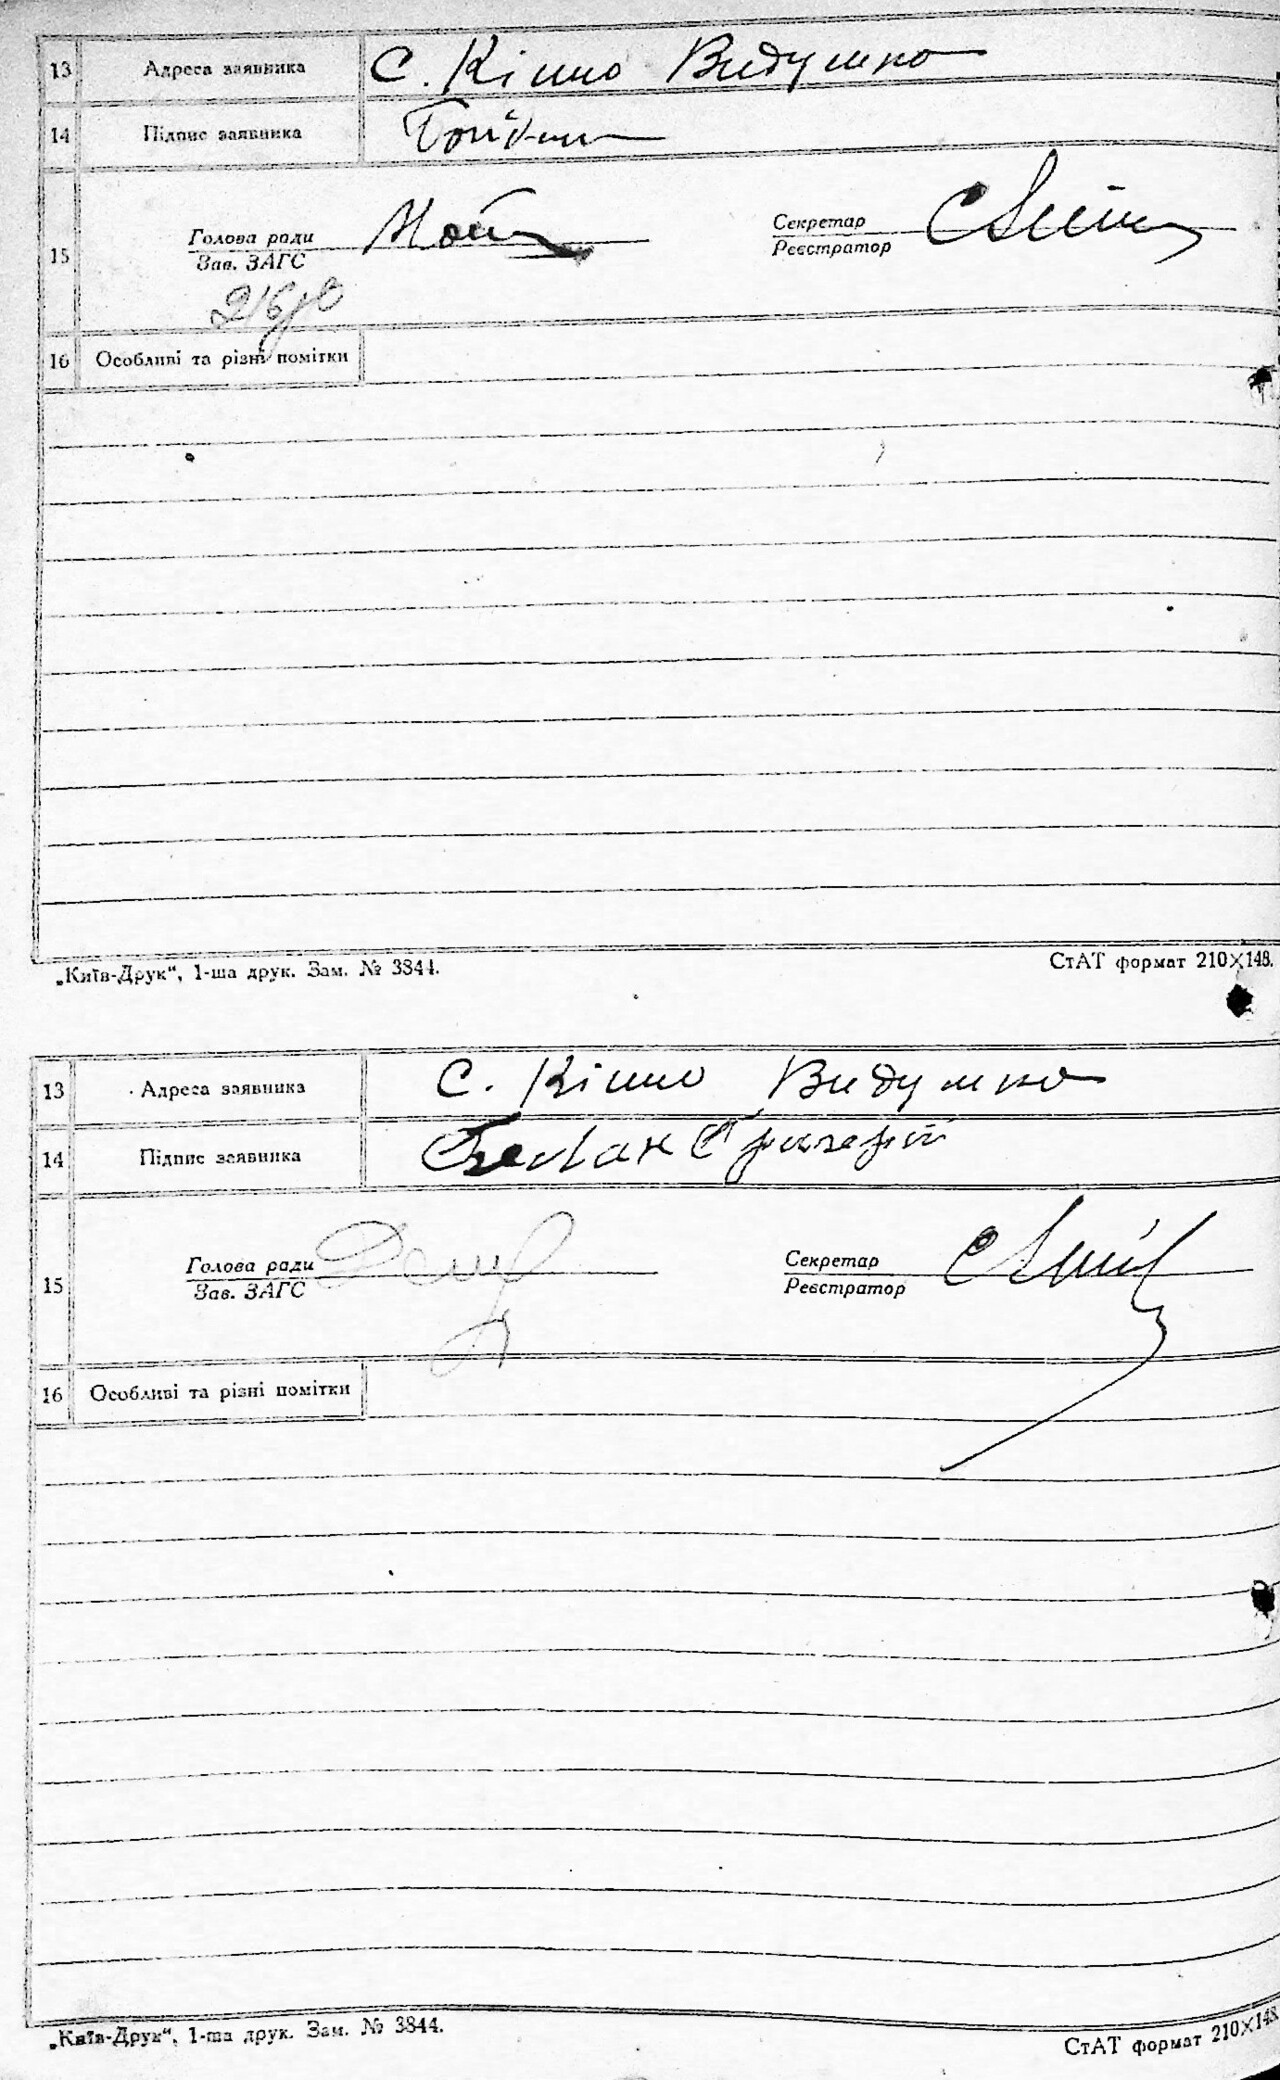 13 Адреса заявника С. Кішно Видумка
14 Підпис заявника
Голова ради Секретар
15 Зав. ЗАГС Реєстратор
16 Особливі та різні помітки
„Київ-Друк“, 1-ша друк. Зам. № 3844. СтАТ формат 210×148.
13 Адреса заявника С. Кішно Видумка
14 Підпис заявника Григорій
Голова ради Секретар
15 Зав. ЗАГС Реєстратор
16 Особливі та різні помітки
„Київ-Друк“, 1-ша друк. Зам. № 3844. СтАТ формат 210×148.